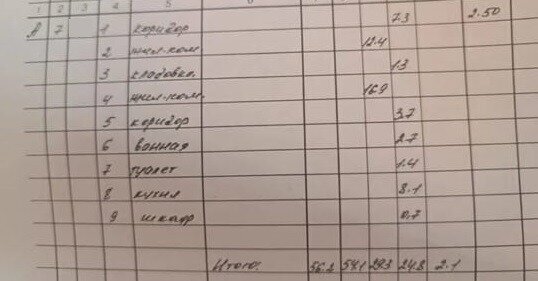 1 2 3 4 5 6
А 7 1 коридор 7.3 2.50
2 жил.ком 12.4
3 кладовка. 1.3
4 жил.ком. 16.9
5 коридор 3.7
6 ванная 2.7
7 туалет 1.4
8 кухня 8.1
9 шкаф 0.7
Итого: 56.2 54.1 29.3 24.8 2.1